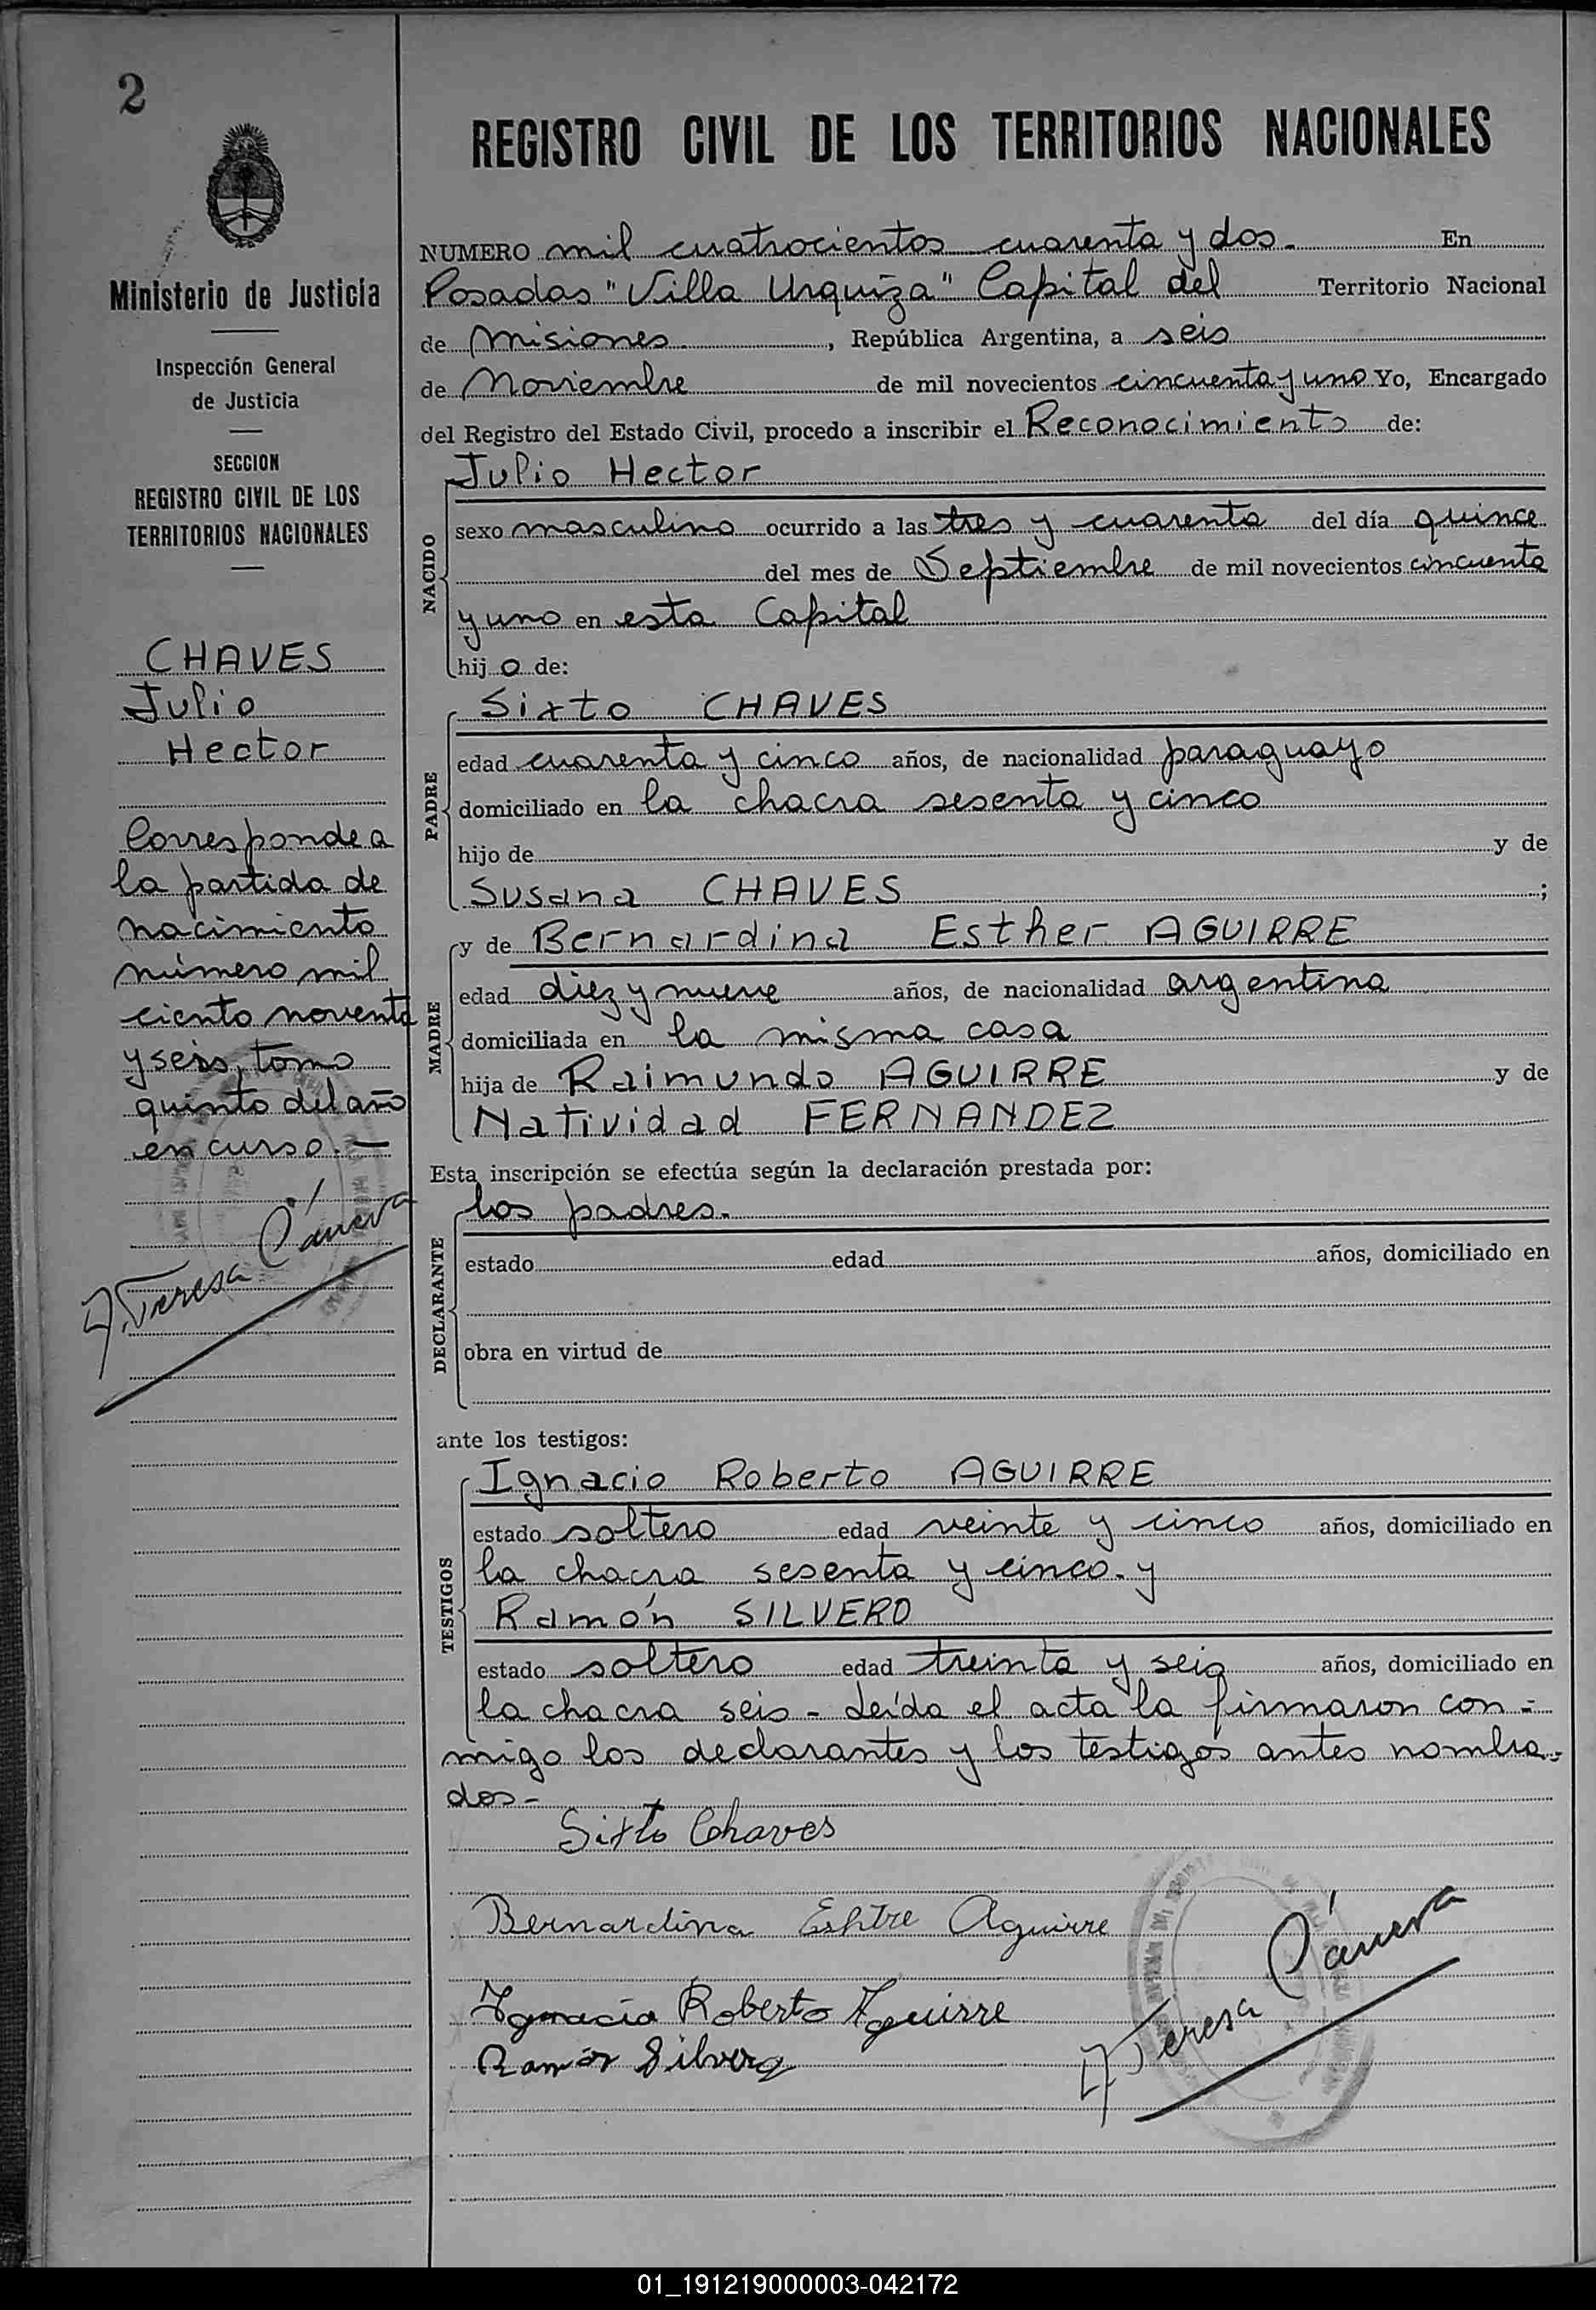 2
Ministerio de Justicia
Inspección General
de Justicia
SECCION
REGISTRO CIVIL DE LOS
TERRITORIOS NACIONALES
CHAVES
Julio
Hector
Corresponde a
la partida de
nacimiento
número mil
ciento noventa
y seis, tomo
quinto del año
en curso.—
Teresa Cánera
REGISTRO CIVIL DE LOS TERRITORIOS NACIONALES
NUMERO mil cuatrocientos cuarenta y dos- En
Posadas "Villa Urquiza" Capital del Territorio Nacional
de Misiones, República Argentina, a seis
de Noviembre de mil novecientos cincuenta y uno Yo, Encargado
del Registro del Estado Civil, procedo a inscribir el Reconocimiento de:
NACIDO
Julio Hector
sexo masculino ocurrido a las tres y cuarenta del día quince
del mes de Septiembre de mil novecientos cincuenta
y uno en esta Capital
hijo de:
PADRE
Sixto CHAVES
edad cuarenta y cinco años, de nacionalidad paraguayo
domiciliado en la chacra sesenta y cinco
hijo de y de
Susana CHAVES ;
MADRE
y de Bernardina Esther AGUIRRE
edad diez y nueve años, de nacionalidad argentina
domiciliada en la misma casa
hija de Raimundo AGUIRRE y de
Natividad FERNANDEZ
Esta inscripción se efectúa según la declaración prestada por:
DECLARANTE
los padres.
estado edad años, domiciliado en
obra en virtud de
ante los testigos:
TESTIGOS
Ignacio Roberto AGUIRRE
estado soltero edad veinte y cinco años, domiciliado en
la chacra sesenta y cinco. y
Ramón SILVERO
estado soltero edad treinta y seis años, domiciliado en
la chacra seis - Leída el acta la firmaron con-
migo los declarantes y los testigos antes nombra-
dos-
Sixto Chaves
Bernardina Eshtre Aguirre
Ygnacio Roberto Aguirre
Ramón Silvero
Teresa Cánera
01_191219000003-042172